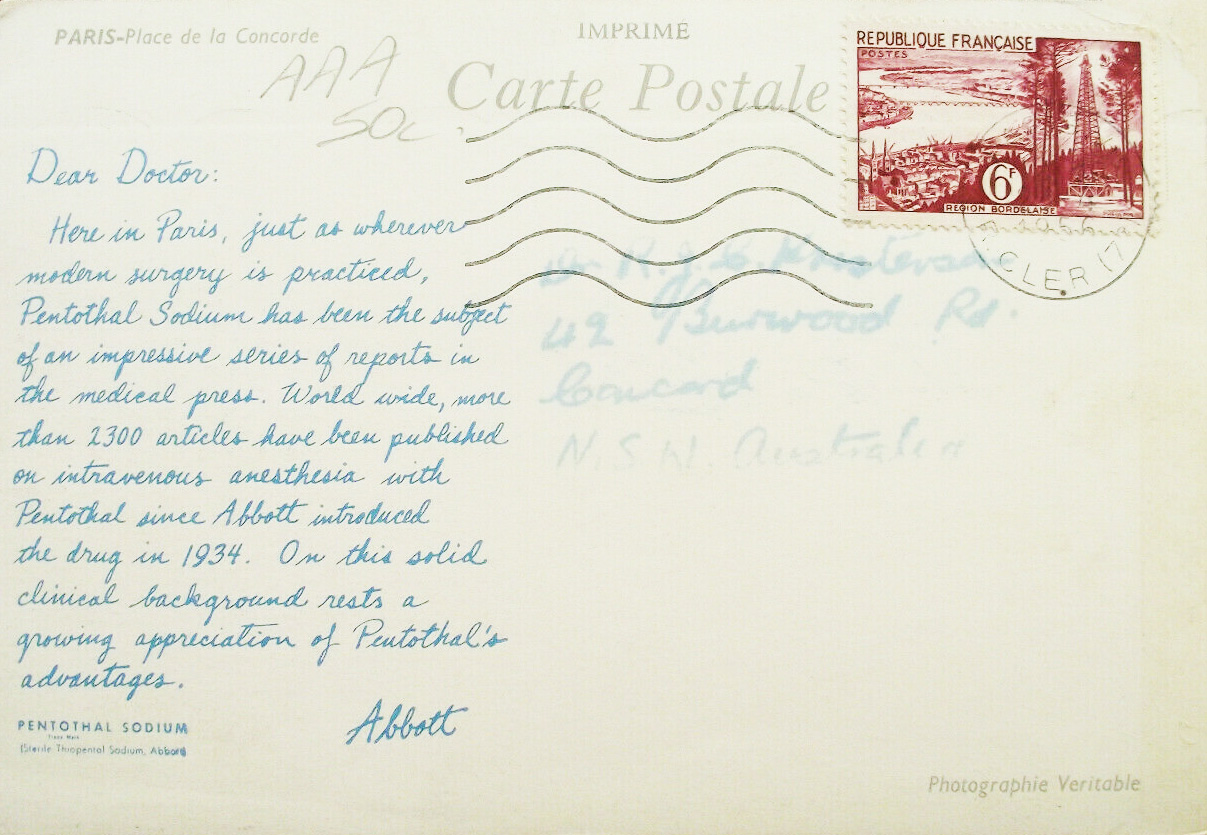 PARIS-Place de la Concorde
IMPRIMÉ
AAA
50c.
Carte Postale
REPUBLIQUE FRANÇAISE
POSTES
6F
REGION BORDELAISE
CLER (17
Dear Doctor:
Here in Paris, just as wherever
modern surgery is practiced,
Pentothal Sodium has been the subject
of an impressive series of reports in
the medical press. World wide, more
than 2300 articles have been published
on intravenous anesthesia with
Pentothal since Abbott introduced
the drug in 1934. On this solid
clinical background rests a
growing appreciation of Pentothal's
advantages.
Abbott
PENTOTHAL SODIUM
Trade Mark
(Sterile Thiopental Sodium, Abbott)
Dr R.J.C.
42 Burwood Rd.
Concord
N.S.W. Australia
Photographie Veritable